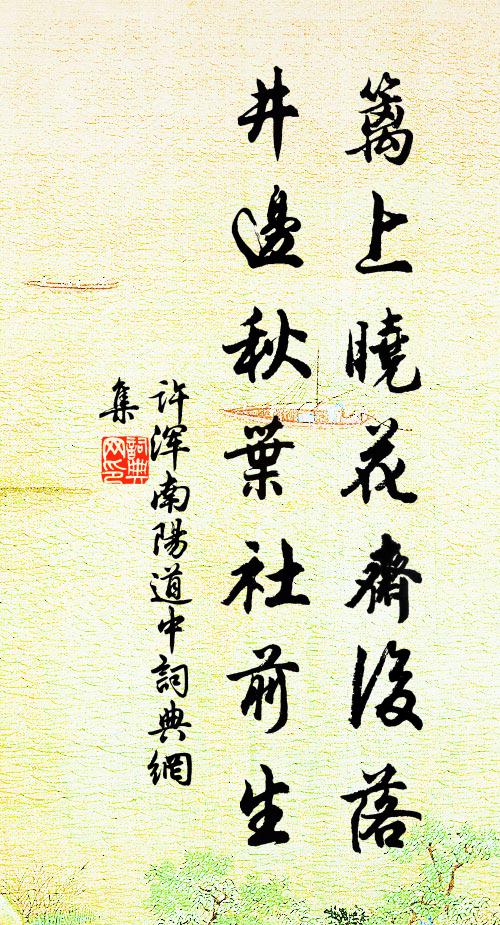 籬上曉花齋後落
井邊秋葉社前生
许浑南陽道中詞典網
集
詞典网印